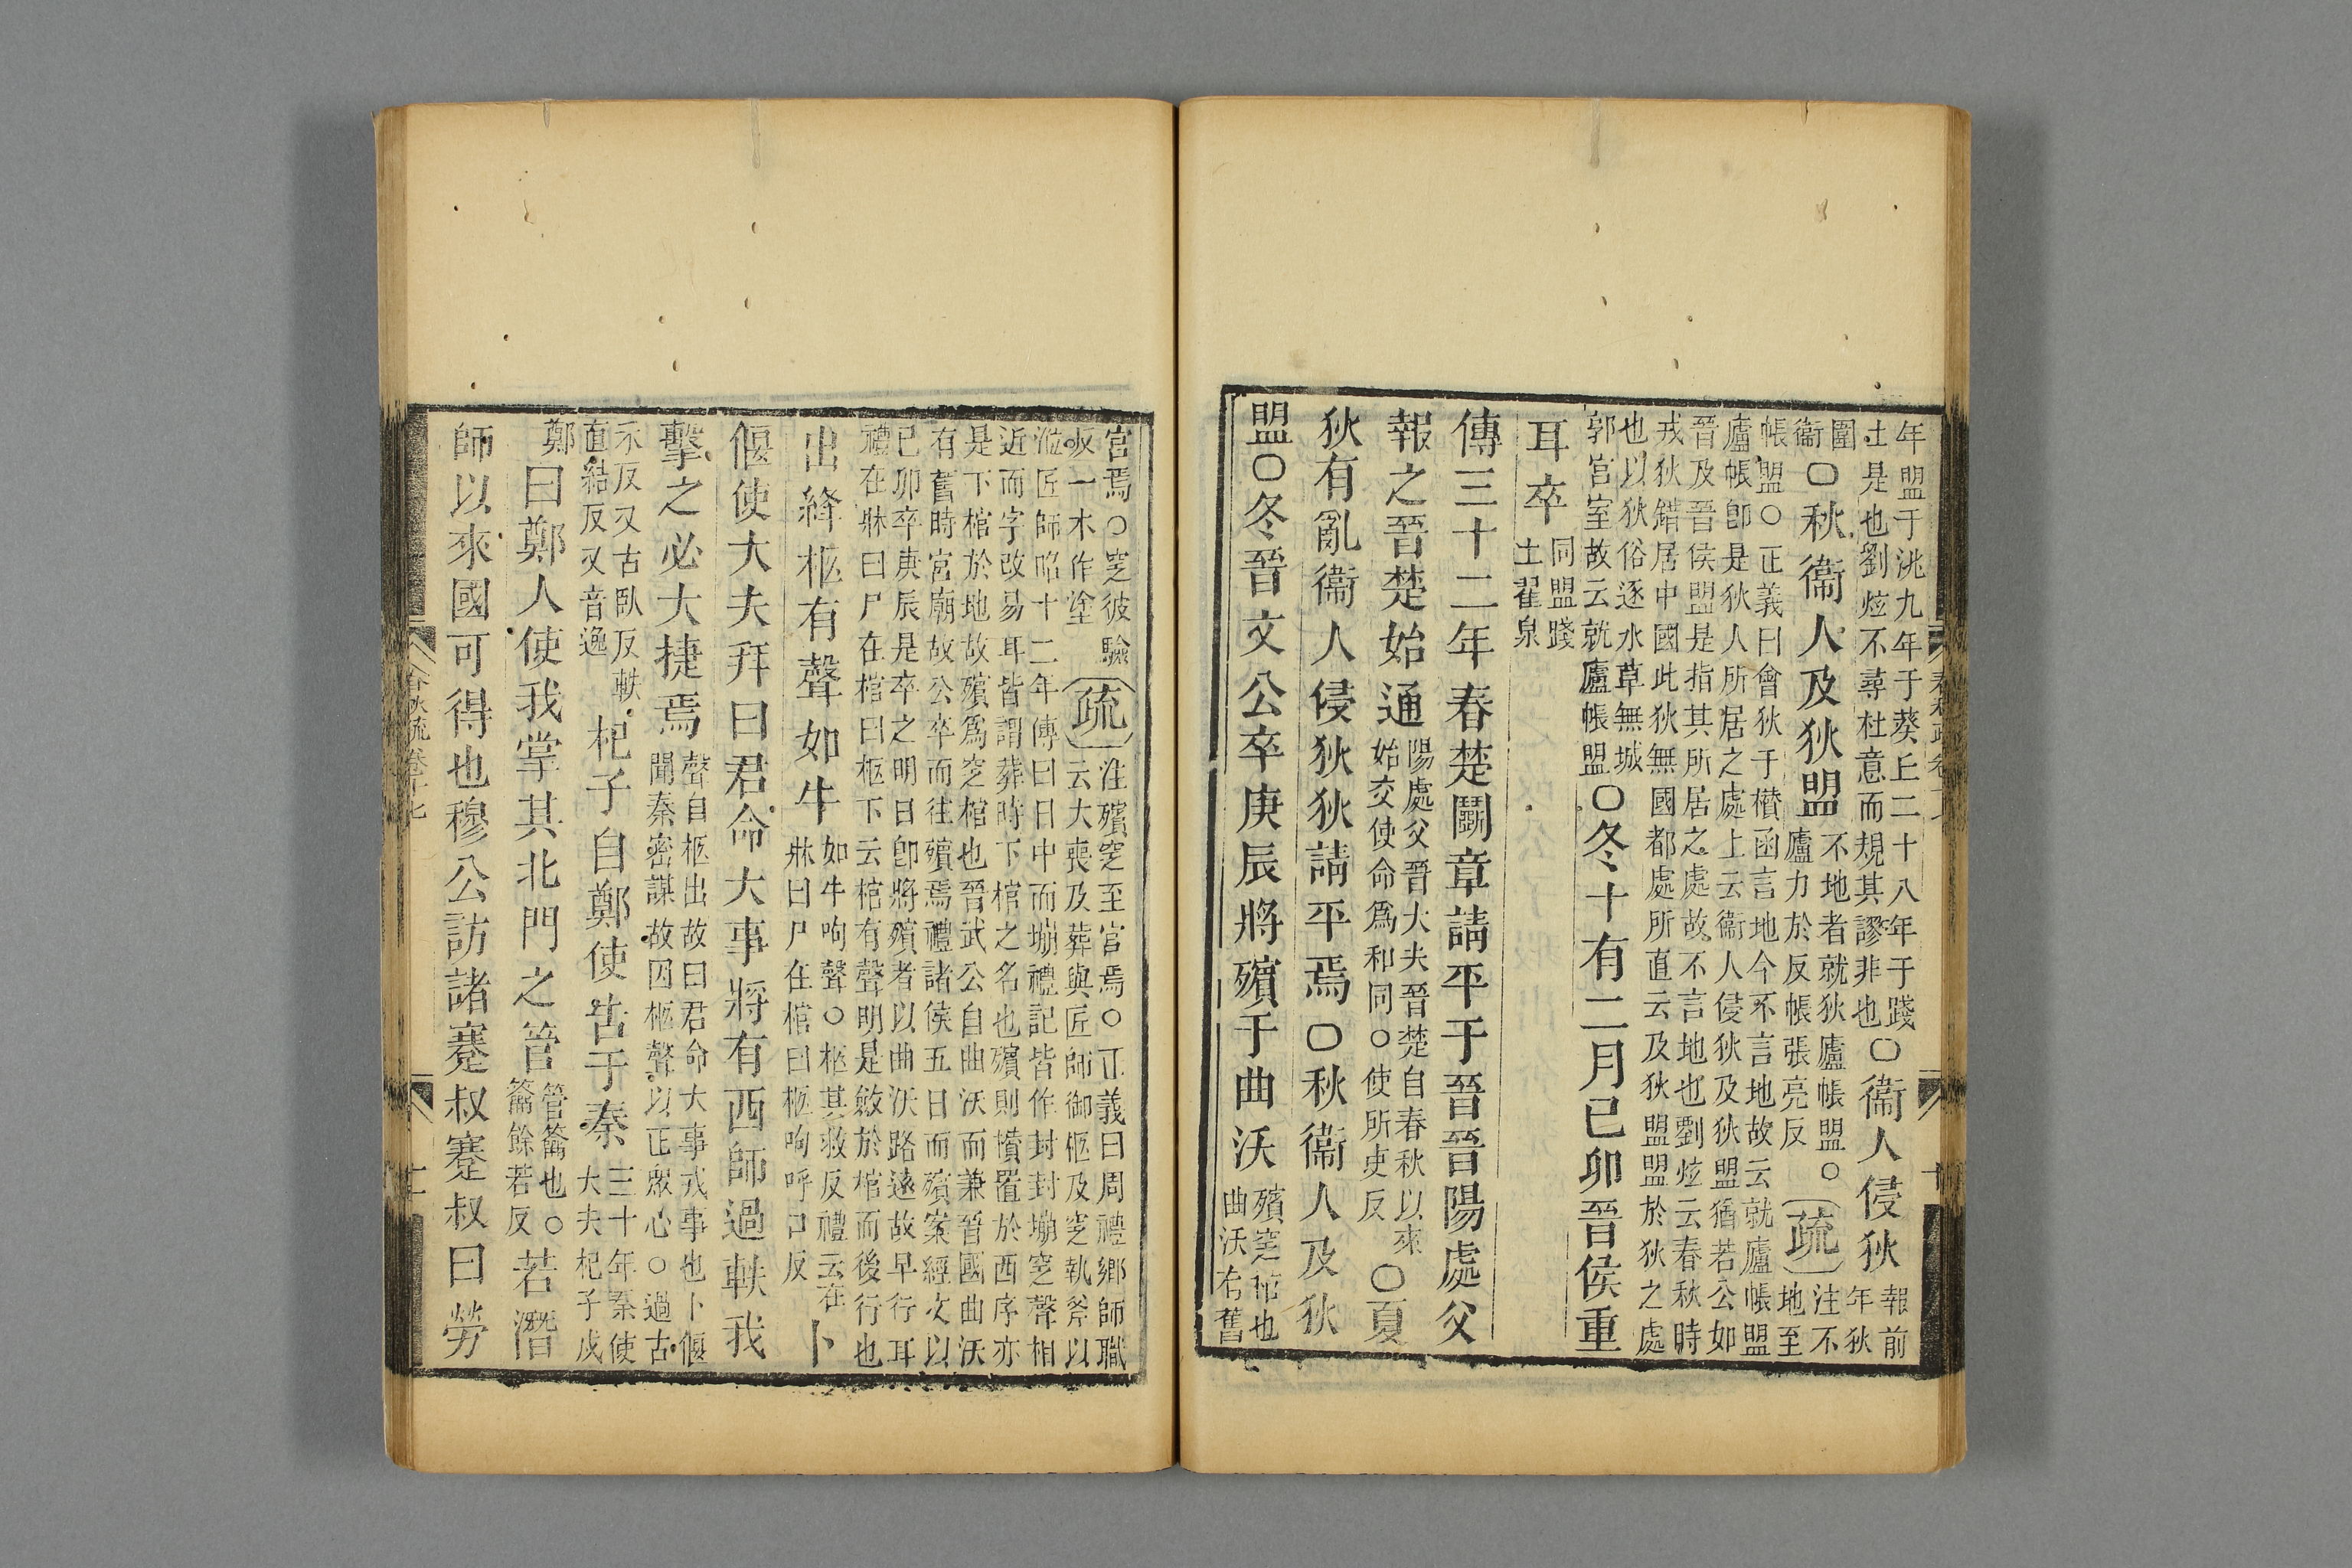 年盟于洮九年于葵丘二十八年于踐土是也劉炫不尋杜意而規其謬非也○衞人侵狄報前年狄
圍衞○秋衞人及狄盟不地者就狄廬帳盟○廬力於反帳張亮反疏注不地至
帳盟○正義曰會狄于欑函言地今不言地故云就廬帳盟
廬帳卽是狄人所居之處上云衞人侵狄及狄盟猶若公如
晉及晉侯盟是指其所居之處故不言地也劉炫云春秋時
戎狄錯居中國此狄無國都處所直云及狄盟盟於狄之處
也以狄俗逐水草無城郭宮室故云就廬帳盟○冬十有二月己卯晉侯重
耳卒同盟踐土翟泉
傳三十二年春楚鬬章請平于晉晉陽處父
報之晉楚始通陽處父晉大夫晉楚自春秋以來始交使命爲和同○使所吏反○夏
狄有亂衞人侵狄狄請平焉○秋衞人及狄
盟○冬晉文公卒庚辰將殯于曲沃殯窆棺也曲沃有舊
宮焉○窆彼驗反一木作塗疏注殯窆至宮焉○正義曰周禮鄉師職云大喪及葬與匠師御柩及窆執斧以
涖匠師昭十二年傳曰日中而塴禮記皆作封封塴窆聲相
近而字改易耳皆謂葬時下棺之名也殯則欑置於西序亦
是下棺於地故殯爲窆棺也晉武公自曲沃而兼晉國曲沃
有舊時宮廟故公卒而往殯焉禮諸侯五日而殯案經文以
己卯卒庚辰是卒之明日卽將殯者以曲沃路遠故早行耳
禮在牀曰尸在棺曰柩下云棺有聲明是斂於棺而後行也
出絳柩有聲如牛如牛呴聲○柩其救反禮云在牀曰尸在棺曰柩呴呼口反卜
偃使大夫拜曰君命大事將有西師過軼我
擊之必大捷焉聲自柩出故曰君命大事戎事也卜偃聞秦密謀故因柩聲以正衆心○過古
禾反又古臥反軼直結反又音逸杞子自鄭使告于秦三十年秦使大夫杞子戍
鄭曰鄭人使我掌其北門之管管籥也○籥餘若反若潛
師以來國可得也穆公訪諸蹇叔蹇叔曰勞
春秋疏卷十七
十一